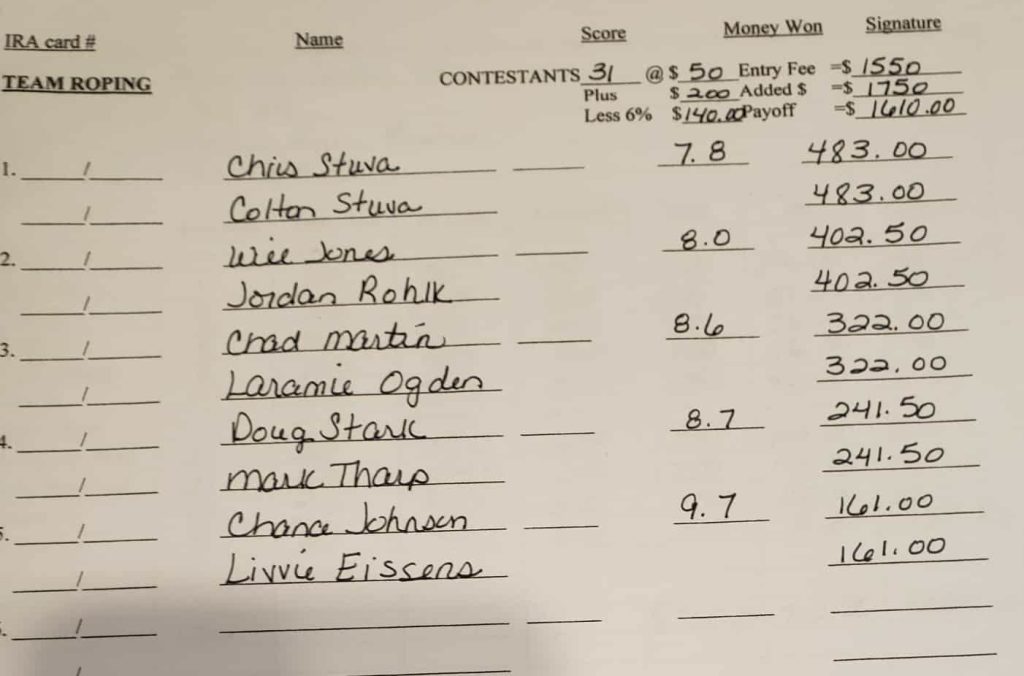 IRA card # Name Score Money Won Signature
TEAM ROPING CONTESTANTS 31 @ $ 50 Entry Fee =$ 1550
Plus $ 200 Added $ =$ 1750
Less 6% $140.00 Payoff =$ 1610.00
1. / Chris Stuva 7.8 483.00
/ Colton Stuva 483.00
2. / Will Jones 8.0 402.50
/ Jordan Rohlk 402.50
3. / Chad Martin 8.6 322.00
/ Laramie Ogden 322.00
4. / Doug Stark 8.7 241.50
/ Mark Tharp 241.50
5. / Chance Johnson 9.7 161.00
/ Livvie Eissens 161.00
/
/